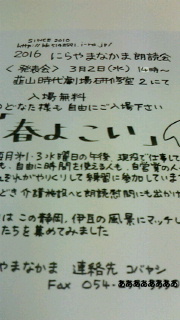 SINCE 2010
2016 にらやまなかま朗読会
<発表会> 3月2日(水) 14時~
韮山時代劇場研修室2にて
入場無料
どなた様も自由にご入場下さい
「春よこい」
月第1・3水曜日の午後、現役で仕事して
も、自由に時間を使える人も、自営業の人
れぞれがやりくりして朗読会に参加しています
どき介護施設へと朗読慰問にも出かけ
はこの静岡、伊豆の風景にマッチし
たちを集めてみました
やまなかま 連絡先 コバヤシ
Fax 054-ああああああああ